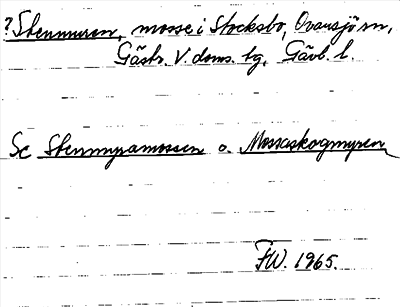 ? Stenmuren, mosse i Stocksbo, Ovansjö sn,
Gästr. V. doms. tg, Gävl. l.
Se Stenmyramossen o. Mossaskogmyren
FW. 1965.